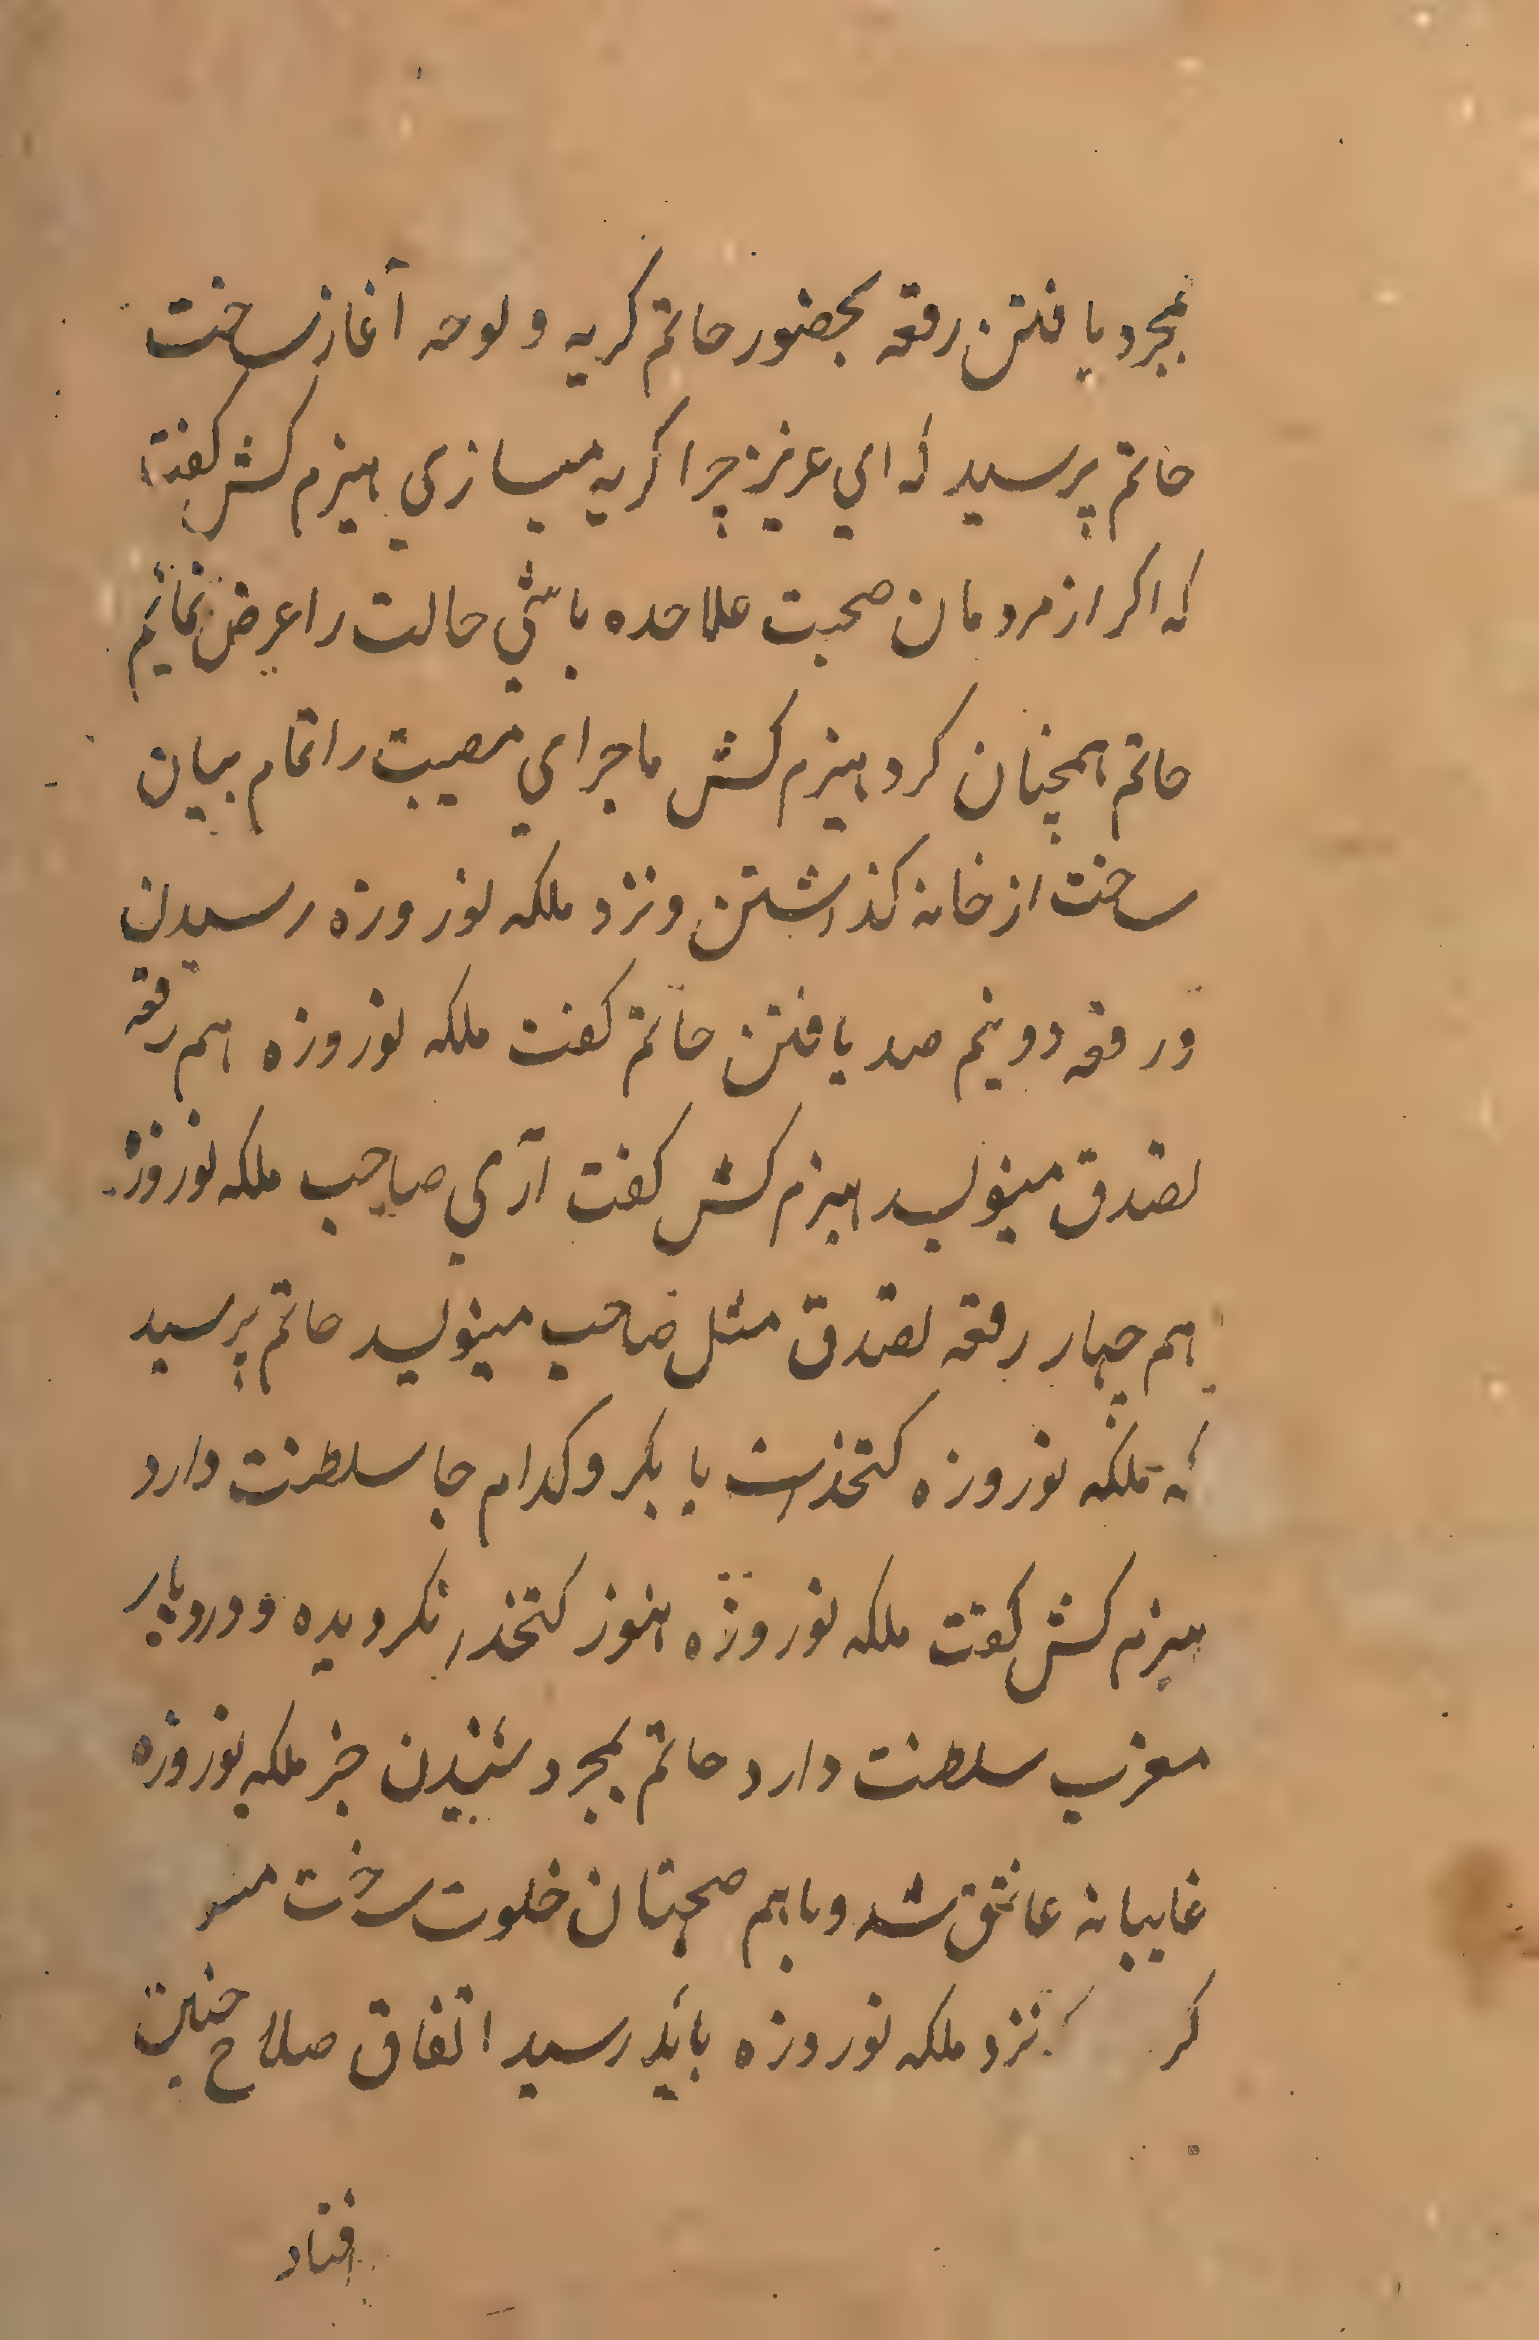 بمجرد یافتن رقعه بحضور حاتم کریه و لوحه آغاز ساخت
حاتم پرسید که ای عزیز چرا کریه میسازی هیزم کش کفت
که اکر از مردمان صحبت علاحده باشی حالت را عرض نمایم
حاتم همچنان کرد هیزم کش ماجرای مصیبت را تمام بیان
ساخت از خانه کذاشتن و نزد ملکه نوروزه رسیدن
و رقعه دو نیم صد یافتن حاتم کفت ملکه نوروزه هم رقعه
تصدق مینویسد هیزم کش کفت آری صاحب ملکه نوروزه
هم چهار رقعه تصدق مثل صاحب مینویسد حاتم پرسید
که ملکه نوروزه کتخداست یا بکر و کدام جا سلطنت دارد
هیزم کش کفت ملکه نوروزه هنوز کتخدا نکردیده و در دیار
مغرب سلطنت دارد حاتم بمجرد شنیدن خبر ملکه نوروزه
غایبانه عاشق شد و با هم صحبتان خلوت ساخت
نزد ملکه نوروزه باید رسید اتفاق صلاح چنین
افتاد